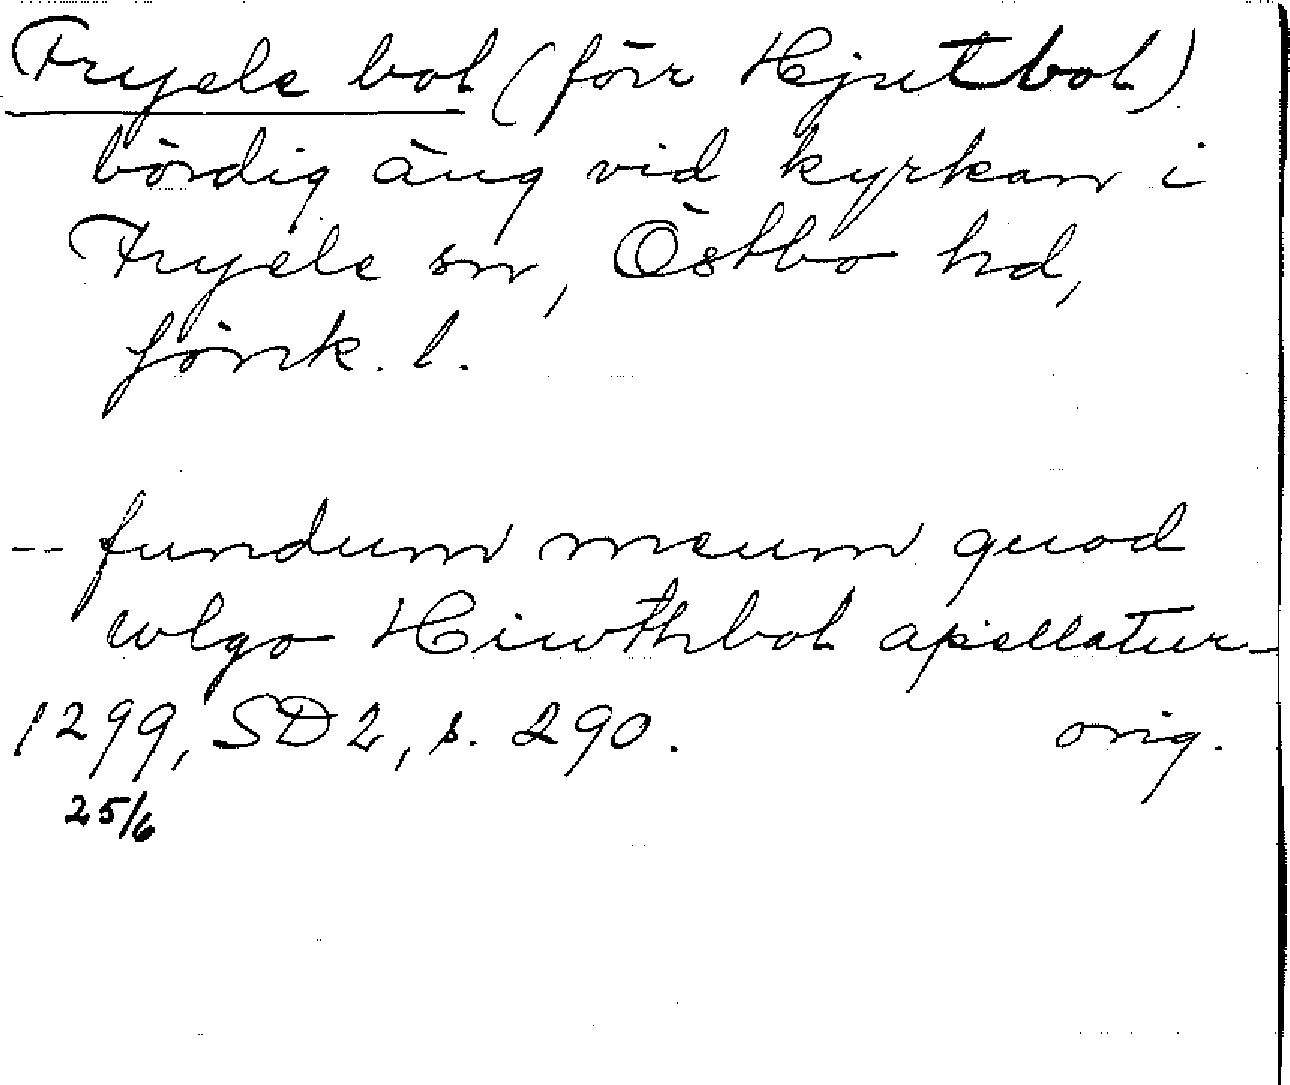 Fryele bol (förr Hjutbol)
bördig äng vid kyrkan i
Fryele sn, Östbo hd,
Jönk. l.
-- fundum meum quod
wlgo Hiwthbol apellatur -
1299, SD 2, s. 290. orig.
25/6